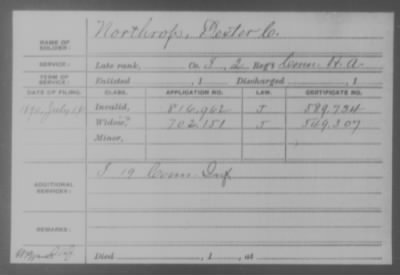 NAME OF SOLDIER: Northrop, Dexter C.
SERVICE: Late rank, Co. I, 2 Reg't Conn H. A.
TERM OF SERVICE: Enlisted , 1 Discharged , 1
DATE OF FILING. CLASS. APPLICATION NO. LAW. CERTIFICATE NO.
1890, July Invalid, 816,942 J 589,734
Widow, 702,151 J 549,307
Minor,
ADDITIONAL SERVICES: I 19 Conn Inf
REMARKS:
Died , 1 , at